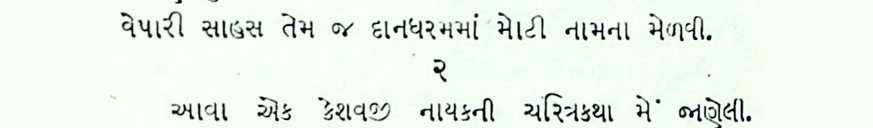 વેપારી સાહસ તેમ જ દાનધરમમાં મોટી નામના મેળવી.
૨
આવા એક કેશવજી નાયકની ચરિત્રકથા મેં જાણેલી.